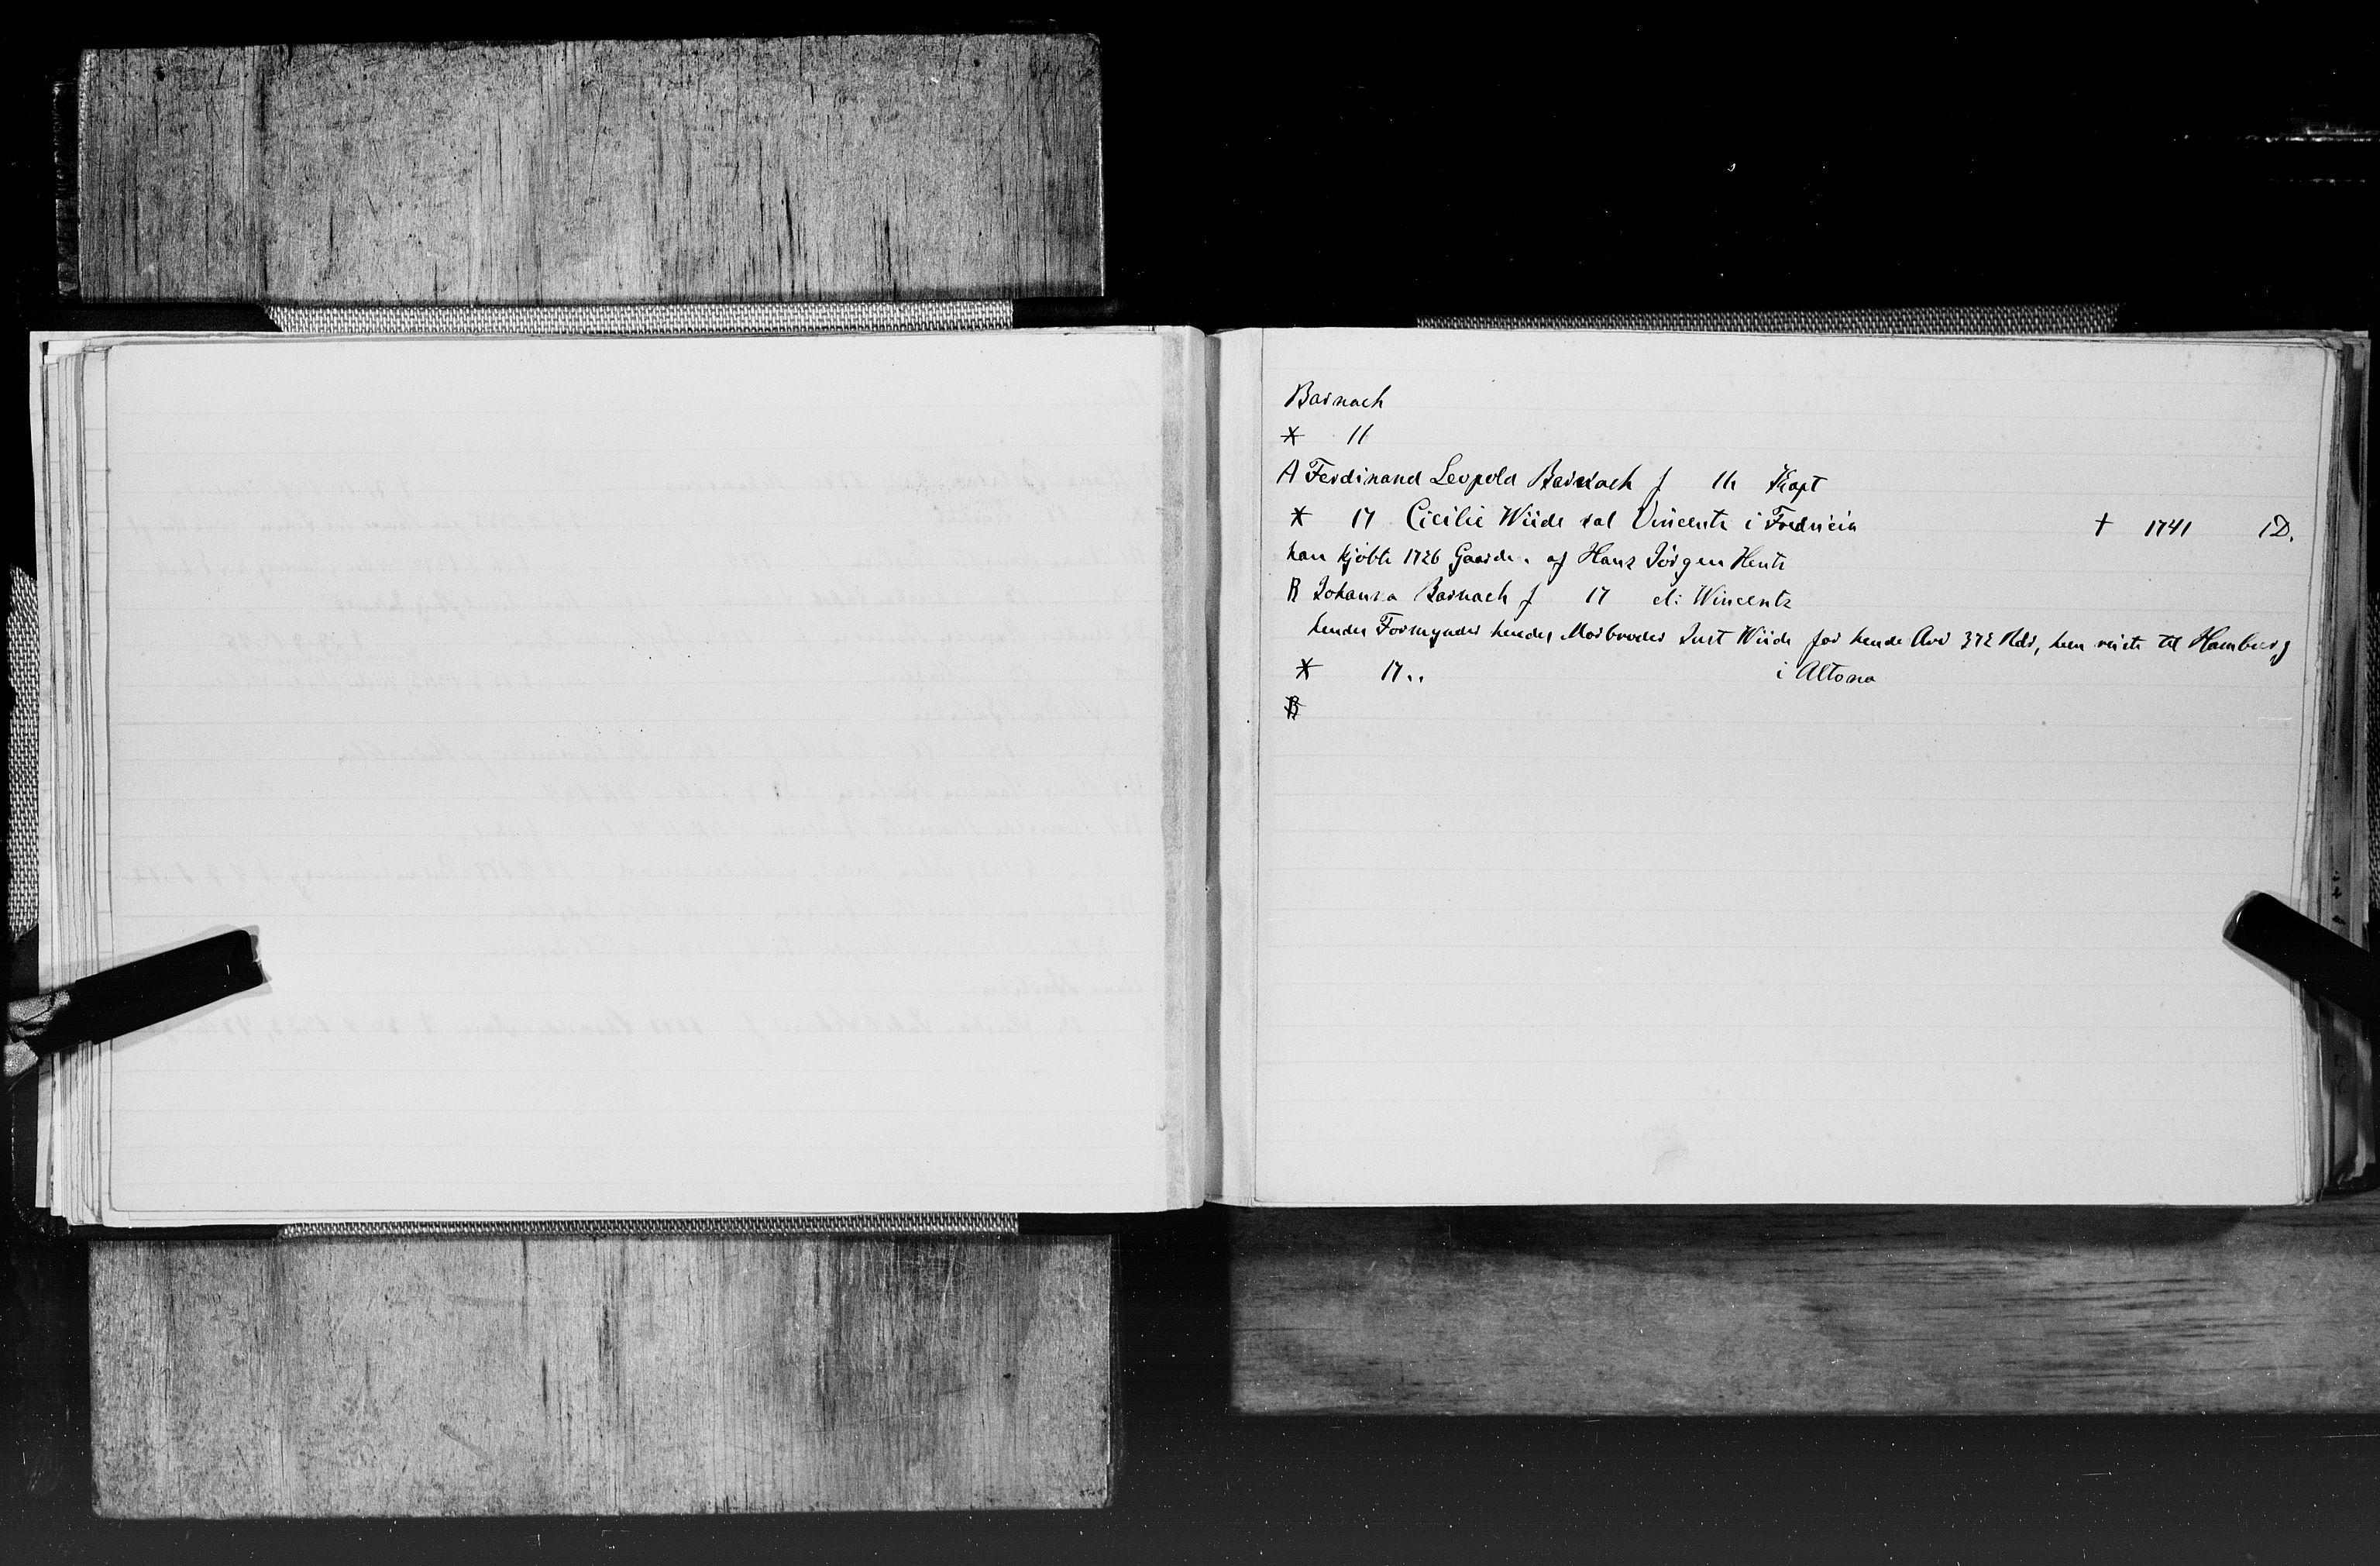 Barnach
* 11
A Ferdinand Leopold Barnach f 16 Kapt
* 17 Cicilie Wiide sal Vincents i Fredricia † 1741 1D.
han kjöbte 1726 Gaarde. af Hans Jörgen Hents
B Johanna Barnach f 17 d: Wincentz
hendes Formynder hendes Morbroder Just Wiide for hende Arv 372 Rdr, hun reiste til Hamburg
* 17.. i Altona
B